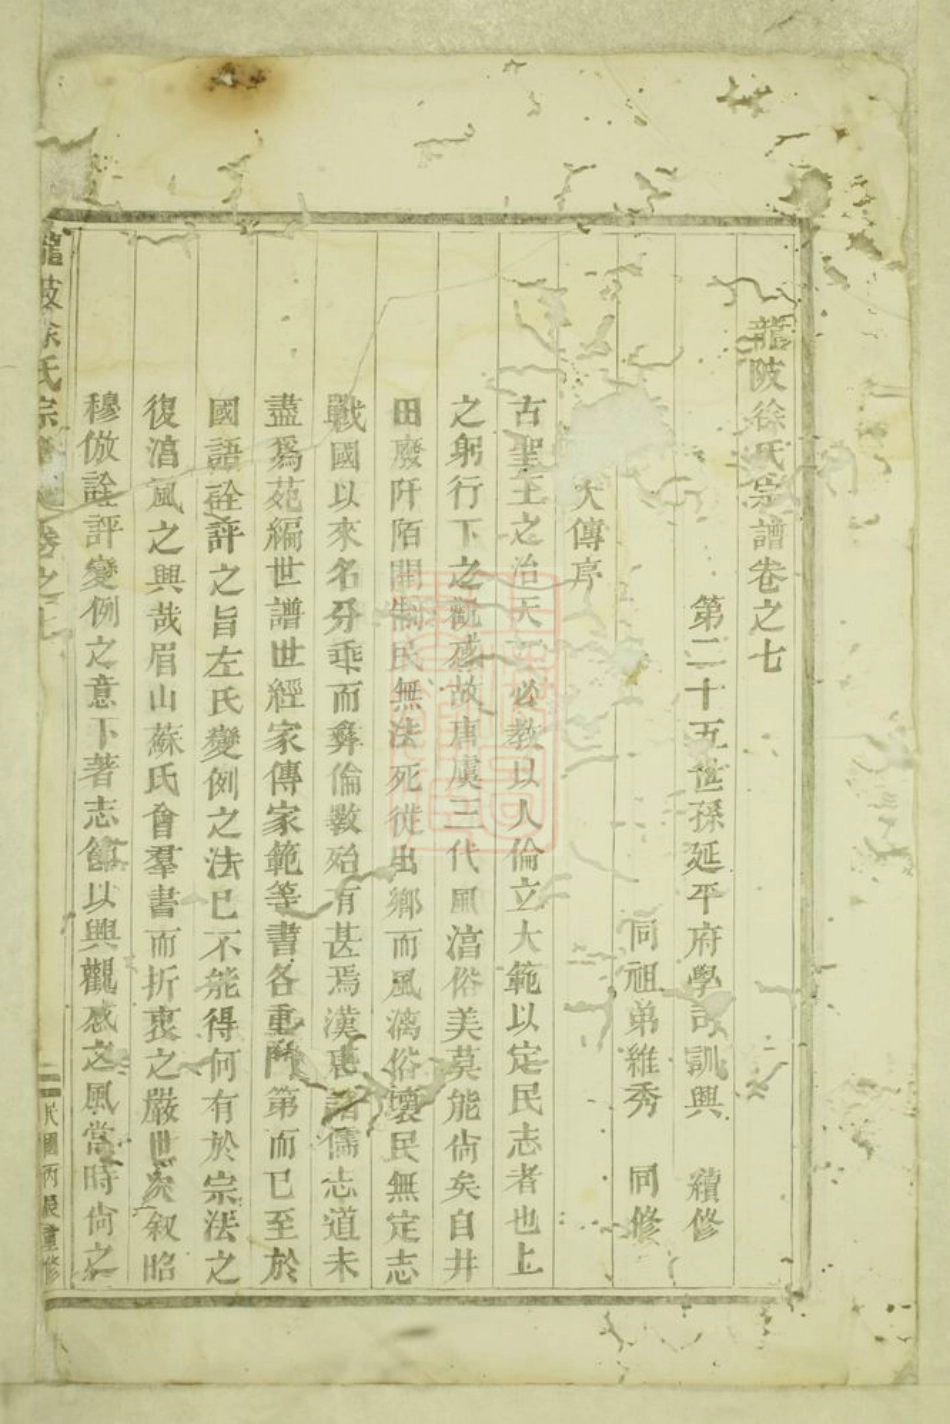 龍陂徐氏宗譜卷之七
第二十五世孫延平府學司訓興　續修
同祖弟維秀　同修
大傳序
古聖王之治天下必教以人倫立大範以定民志者也上
之躬行下之觀感故唐虞三代風湻俗美莫能尙矣自井
田廢阡陌開制民無法死徙出鄉而風漓俗壞民無定志
戰國以來名分乖而彝倫斁殆有甚焉漢唐諸儒志道未
盡爲苑編世譜世經家傳家範等書各重門第而已至於
國語詮評之旨左氏變例之法已不能得何有於宗法之
復湻風之興哉眉山蘇氏會羣書而折衷之嚴世次叙昭
穆倣詮評變例之意下著志館以興觀感之風當時尙之
龍陂徐氏宗譜 卷之七
二
民國丙辰重修